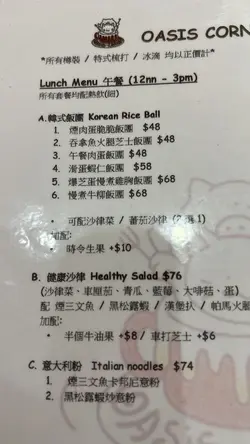 OASIS CORN
*所有樽裝 / 特式梳打 / 冰滴 均以正價計*
Lunch Menu 午餐 (12nn - 3pm)
所有套餐均配熱飲(細)
A.韓式飯團 Korean Rice Ball
1. 煙肉蛋脆脆飯團 $48
2. 吞拿魚火腿芝士飯團 $48
3. 午餐肉蛋飯團 $48
4. 滑蛋蝦仁飯團 $58
5. 爆芝蛋慢煮雞胸飯團 $68
6. 慢煮牛柳飯團 $68
• 可配沙律菜 / 蕃茄沙律 (2選1)
加配:
• 時令生果 +$10
B. 健康沙律 Healthy Salad $76
(沙律菜、車厘茄、青瓜、藍莓、大啡菇、蛋)
配 煙三文魚 / 黑松露蝦 / 漢堡扒 / 帕馬火
加配:
• 半個牛油果 +$8/ 車打芝士 +$6
C. 意大利粉 Italian noodles $74
1. 煙三文魚卡邦尼意粉
2. 黑松露蝦炒意粉